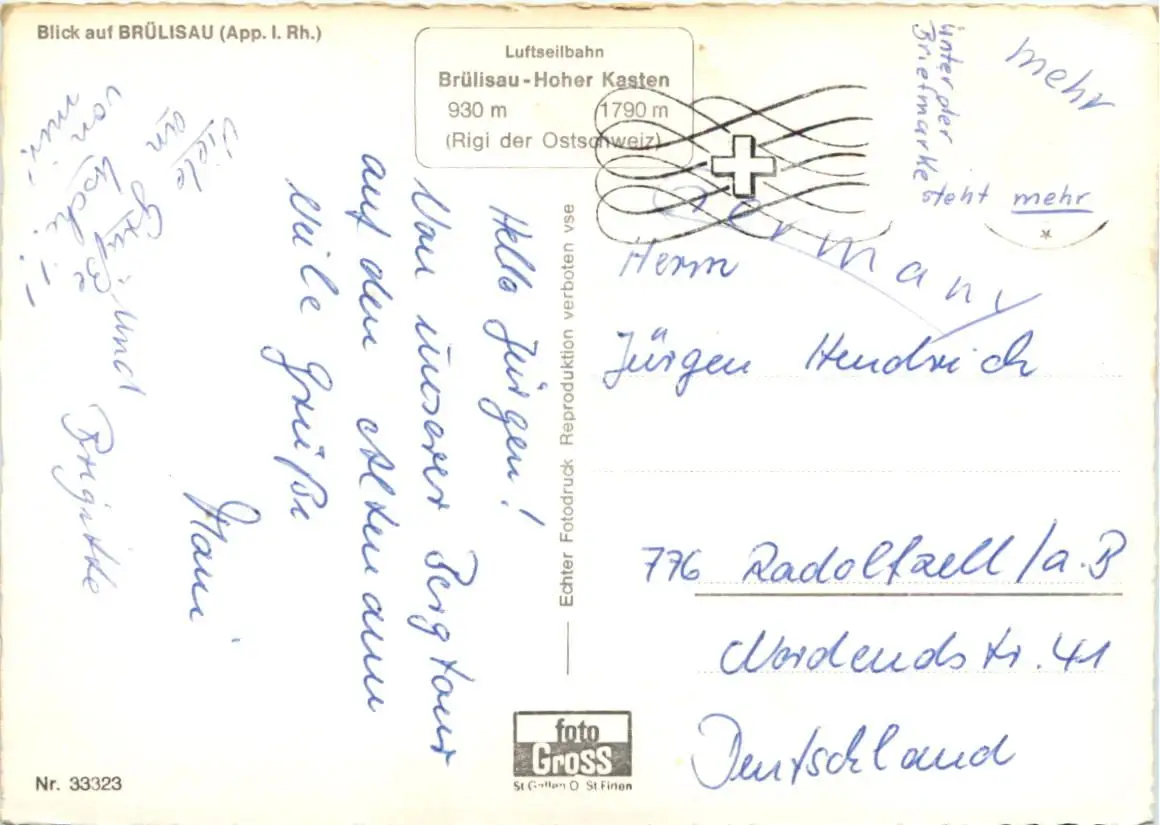 Blick auf BRÜLISAU (App. I. Rh.)
Luftseilbahn
Brülisau-Hoher Kasten
930 m 1790 m
(Rigi der Ostschweiz)
Hello Jürgen!
Von unserer Bergtour
auf den Altmann
viele Grüße
Mani
und Brigitte
Viele
Grüße
von
mir!
unter der
Briefmarke
steht mehr
mehr
Germany
Herrn
Jürgen Hendrich
776 Radolfzell/a.B
Nordendstr. 41
Deutschland
Echter Fotodruck Reproduktion verboten vse
foto
Gross
St.Gallen O St.Fiden
Nr. 33323